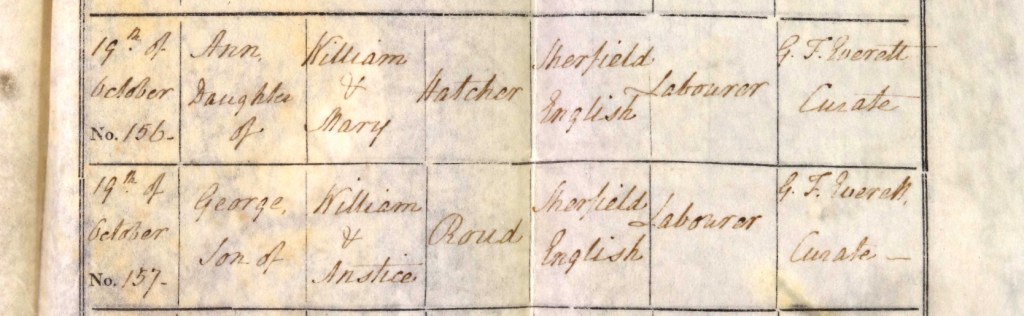 19th of
October
No. 156-
Ann,
Daughter
of
William
&
Mary
Hatcher
Sherfield
English
Labourer
G. F. Everett
Curate
19th of
October
No. 157-
George,
Son of
William
&
Anstice
Roud
Sherfield
English
Labourer
G. F. Everett,
Curate -